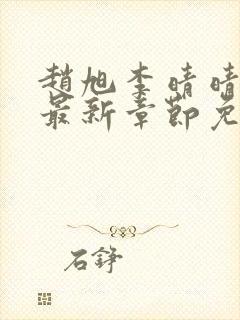 趙旭李晴晴
最新章節免
石錚